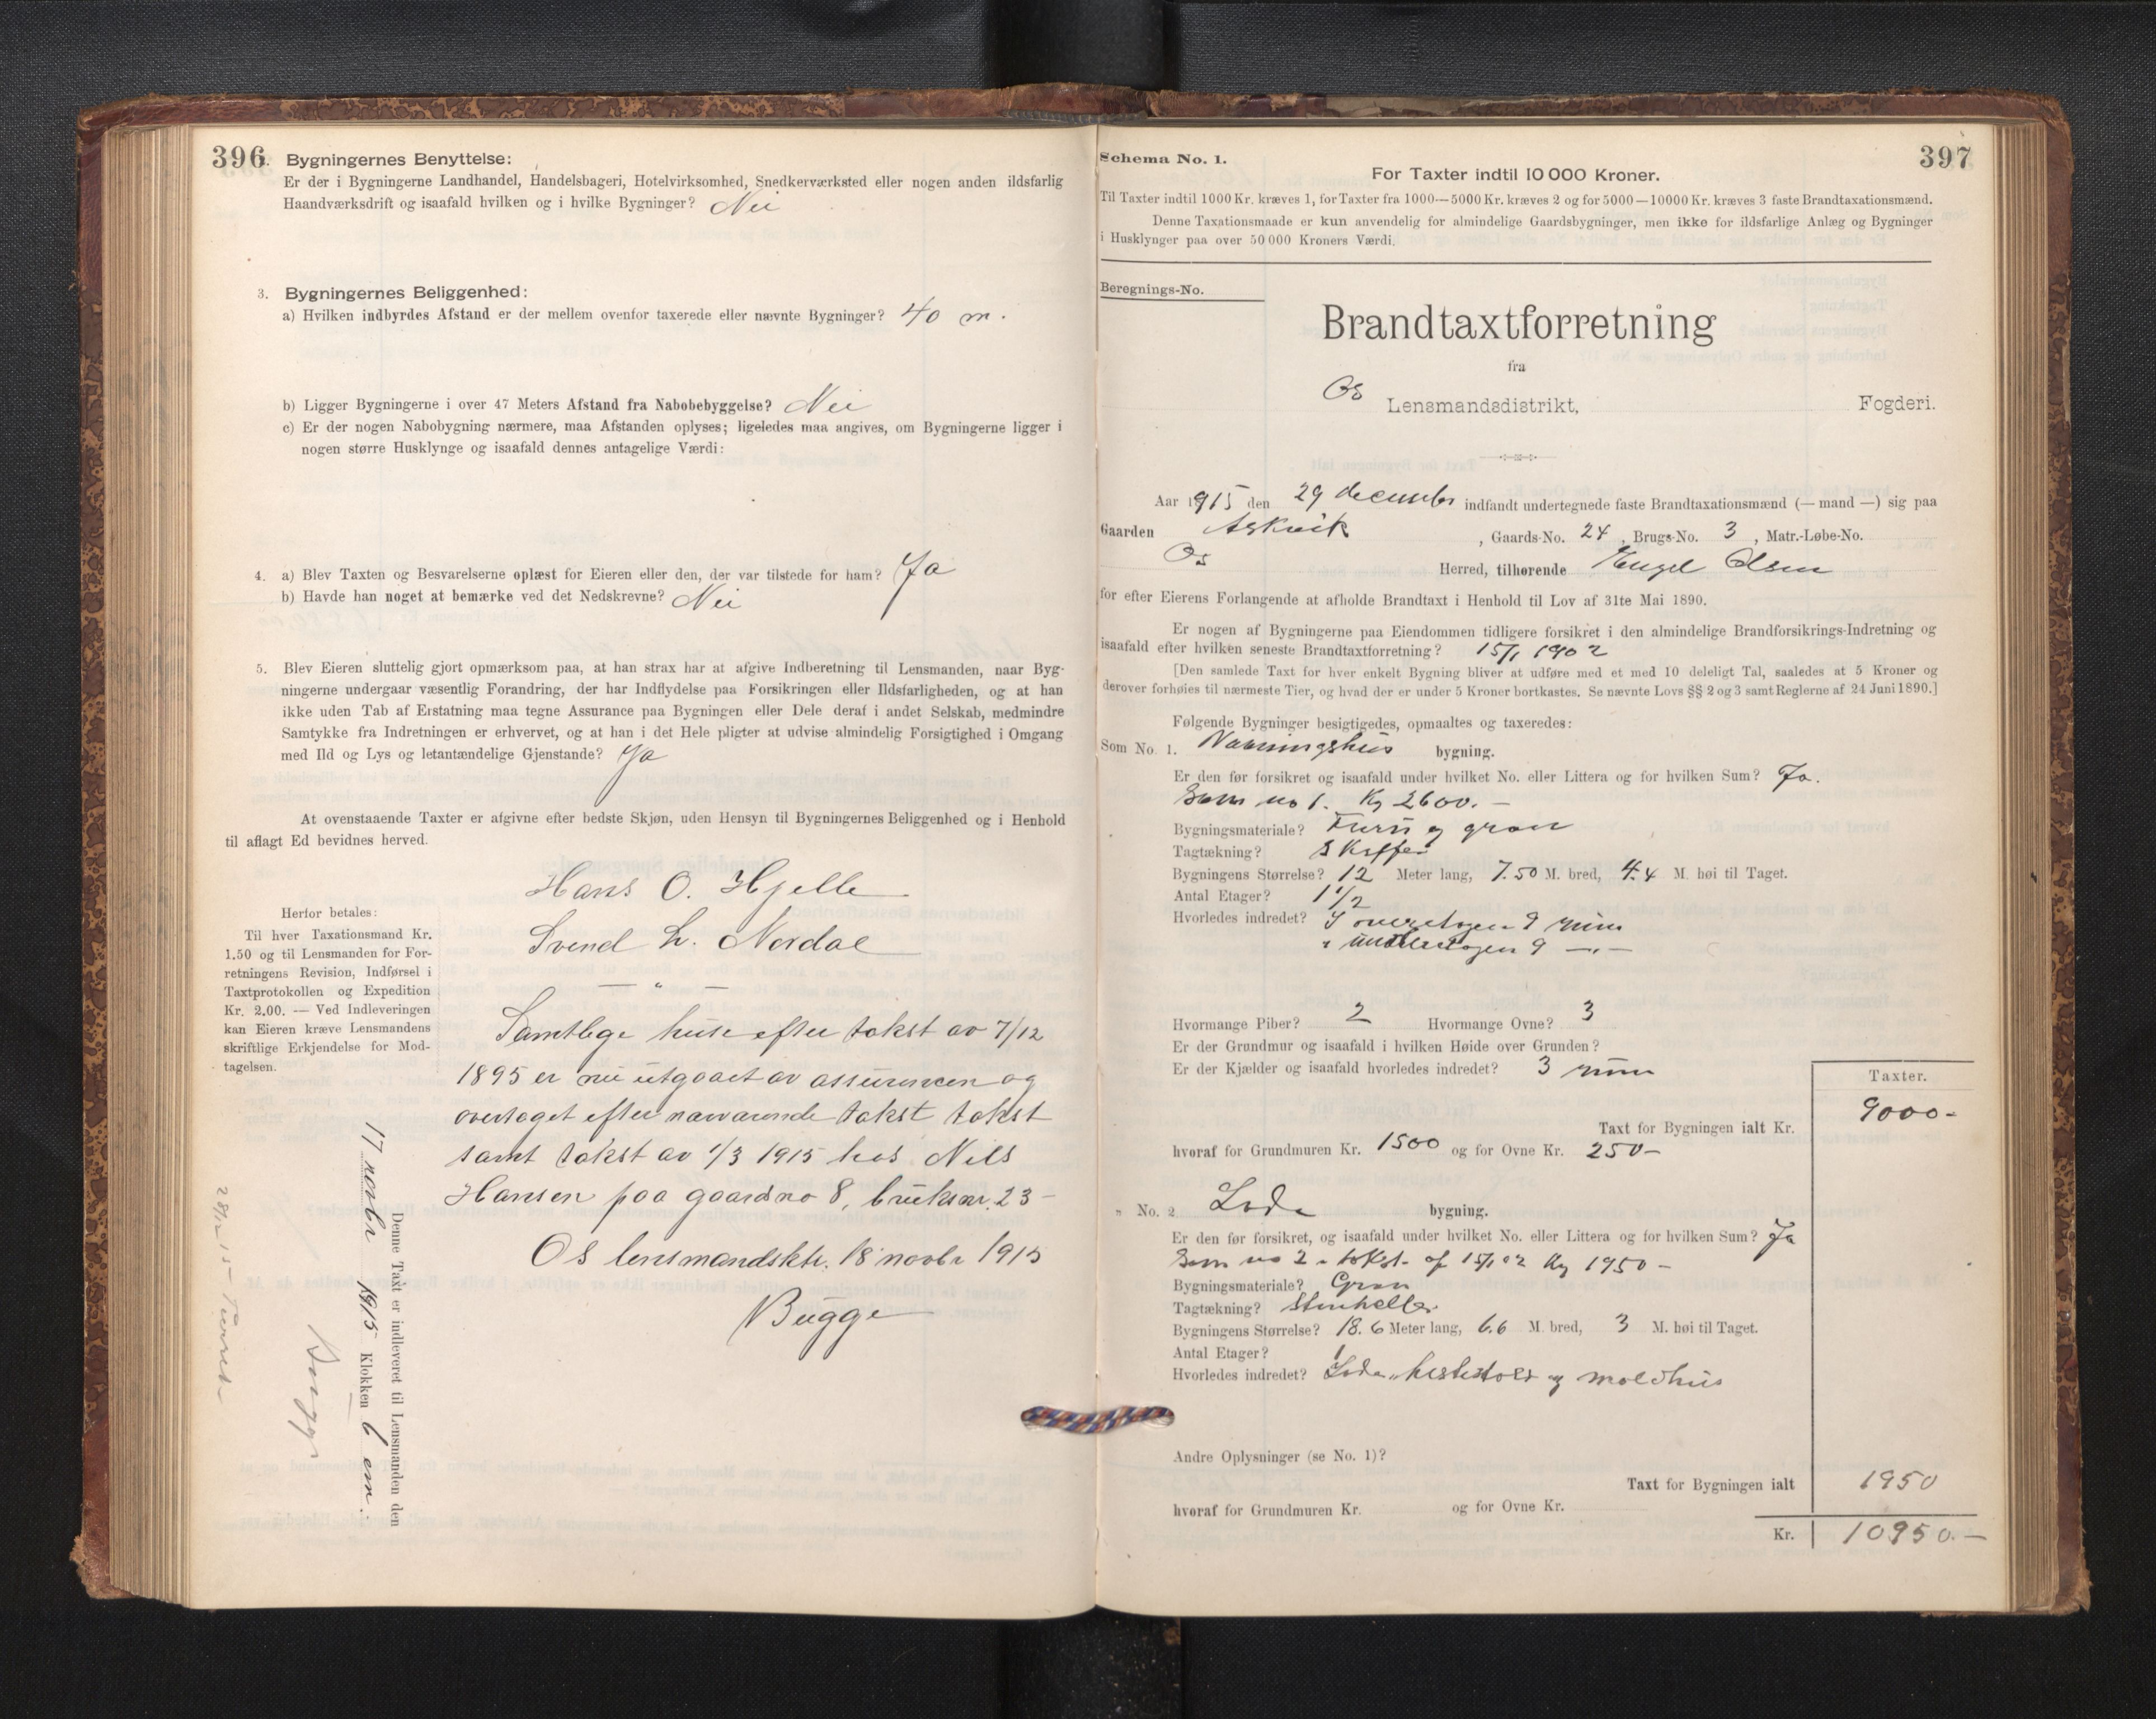 396.
Bygningernes Benyttelse:
Er der i Bygningerne Landhandel, Handelsbageri, Hotelvirksomhed, Snedkerværksted eller nogen anden ildsfarlig
Haandværksdrift og isaafald hvilken og i hvilke Bygninger? Nei
3. Bygningernes Beliggenhed:
a) Hvilken indbyrdes Afstand er der mellem ovenfor taxerede eller nævnte Bygninger? 40 m.
b) Ligger Bygningerne i over 47 Meters Afstand fra Nabobebyggelse? Nei
c) Er der nogen Nabobygning nærmere, maa Afstanden oplyses; ligeledes maa angives, om Bygningerne ligger i
nogen større Husklynge og isaafald dennes antagelige Værdi:
4. a) Blev Taxten og Besvarelserne oplæst for Eieren eller den, der var tilstede for ham? Ja
b) Havde han noget at bemærke ved det Nedskrevne? Nei
5. Blev Eieren sluttelig gjort opmærksom paa, at han strax har at afgive Indberetning til Lensmanden, naar Byg-
ningerne undergaar væsentlig Forandring, der har Indflydelse paa Forsikringen eller Ildsfarligheden, og at han
ikke uden Tab af Erstatning maa tegne Assurance paa Bygningen eller Dele deraf i andet Selskab, medmindre
Samtykke fra Indretningen er erhvervet, og at han i det Hele pligter at udvise almindelig Forsigtighed i Omgang
med Ild og Lys og letantændelige Gjenstande? Ja
At ovenstaaende Taxter er afgivne efter bedste Skjøn, uden Hensyn til Bygningernes Beliggenhed og i Henhold
til aflagt Ed bevidnes herved.
Hans O. Hjelle
Svend L. Nordal
— " —
Herfor betales:
Til hver Taxationsmand Kr.
1.50 og til Lensmanden for For-
retningens Revision, Indførsel i
Taxtprotokollen og Expedition
Kr. 2.00. — Ved Indleveringen
kan Eieren kræve Lensmandens
skriftlige Erkjendelse for Mod-
tagelsen.
Samtlige huse efter takst av 7/12
1895 er nu utgaaet av assurancen og
overtaget efter nærværende takst takst
samt takst av 1/3 1915 hos Nils
Hansen paa gaardno 8, bruksnr. 23 -
Os lensmandsktr. 18 novbr 1915
Bugge
Denne Taxt er indleveret til Lensmanden den
17 novbr 1915 Klokken 6 em.
Bugge
397
Schema No. 1.
For Taxter indtil 10 000 Kroner.
Til Taxter indtil 1000 Kr. kræves 1, for Taxter fra 1000—5000 Kr. kræves 2 og for 5000—10000 Kr. kræves 3 faste Brandtaxationsmænd.
Denne Taxationsmaade er kun anvendelig for almindelige Gaardsbygninger, men ikke for ildsfarlige Anlæg og Bygninger
i Husklynger paa over 50 000 Kroners Værdi.
Beregnings-No.
Brandtaxtforretning
fra
Os Lensmandsdistrikt, Fogderi.
Aar 1915 den 29 december indfandt undertegnede faste Brandtaxationsmænd (— mand —) sig paa
Gaarden Askvik, Gaards-No. 24, Brugs-No. 3, Matr.-Løbe-No.
Os Herred, tilhørende Engel Olsen
for efter Eierens Forlangende at afholde Brandtaxt i Henhold til Lov af 31te Mai 1890.
Er nogen af Bygningerne paa Eiendommen tidligere forsikret i den almindelige Brandforsikrings-Indretning og
isaafald efter hvilken seneste Brandtaxtforretning? 15/1 1902
[Den samlede Taxt for hver enkelt Bygning bliver at udføre med et med 10 deleligt Tal, saaledes at 5 Kroner og
derover forhøies til nærmeste Tier, og hvad der er under 5 Kroner bortkastes. Se nævnte Lovs §§ 2 og 3 samt Reglerne af 24 Juni 1890.]
Følgende Bygninger besigtigedes, opmaaltes og taxeredes:
Som No. 1. Vaaningshus bygning.
Er den før forsikret og isaafald under hvilket No. eller Littera og for hvilken Sum? Ja.
Som no 1. Kr 2600. —
Bygningsmateriale? Furu og gran
Tagtækning? Skiffer
Bygningens Størrelse? 12 Meter lang, 7.50 M. bred, 4.4 M. høi til Taget.
Antal Etager? 1 1/2
Hvorledes indredet? I overetagen 9 rum
i underetagen 9 —.—
Hvormange Piber? 2 Hvormange Ovne? 3
Er der Grundmur og isaafald i hvilken Høide over Grunden?
Er der Kjælder og isaafald hvorledes indredet? 3 rum
Taxter.
Taxt for Bygningen ialt Kr. 9000 -
hvoraf for Grundmuren Kr. 1500 og for Ovne Kr. 250 —
" No. 2 Lada bygning.
Er den før forsikret, og isaafald under hvilket No. eller Littera og for hvilken Sum? Ja
Som no 2 i takst af 15/1 02 Kr 1950 —
Bygningsmateriale? Gran
Tagtækning? Stenheller
Bygningens Størrelse? 18.6 Meter lang, 6.6 M. bred, 3 M. høi til Taget.
Antal Etager? 1
Hvorledes indredet? Lada, hestestald og moldhus
Andre Oplysninger (se No. 1)?
Taxt for Bygningen ialt 1950
hvoraf for Grundmuren Kr. og for Ovne Kr.
Kr. 10950. —